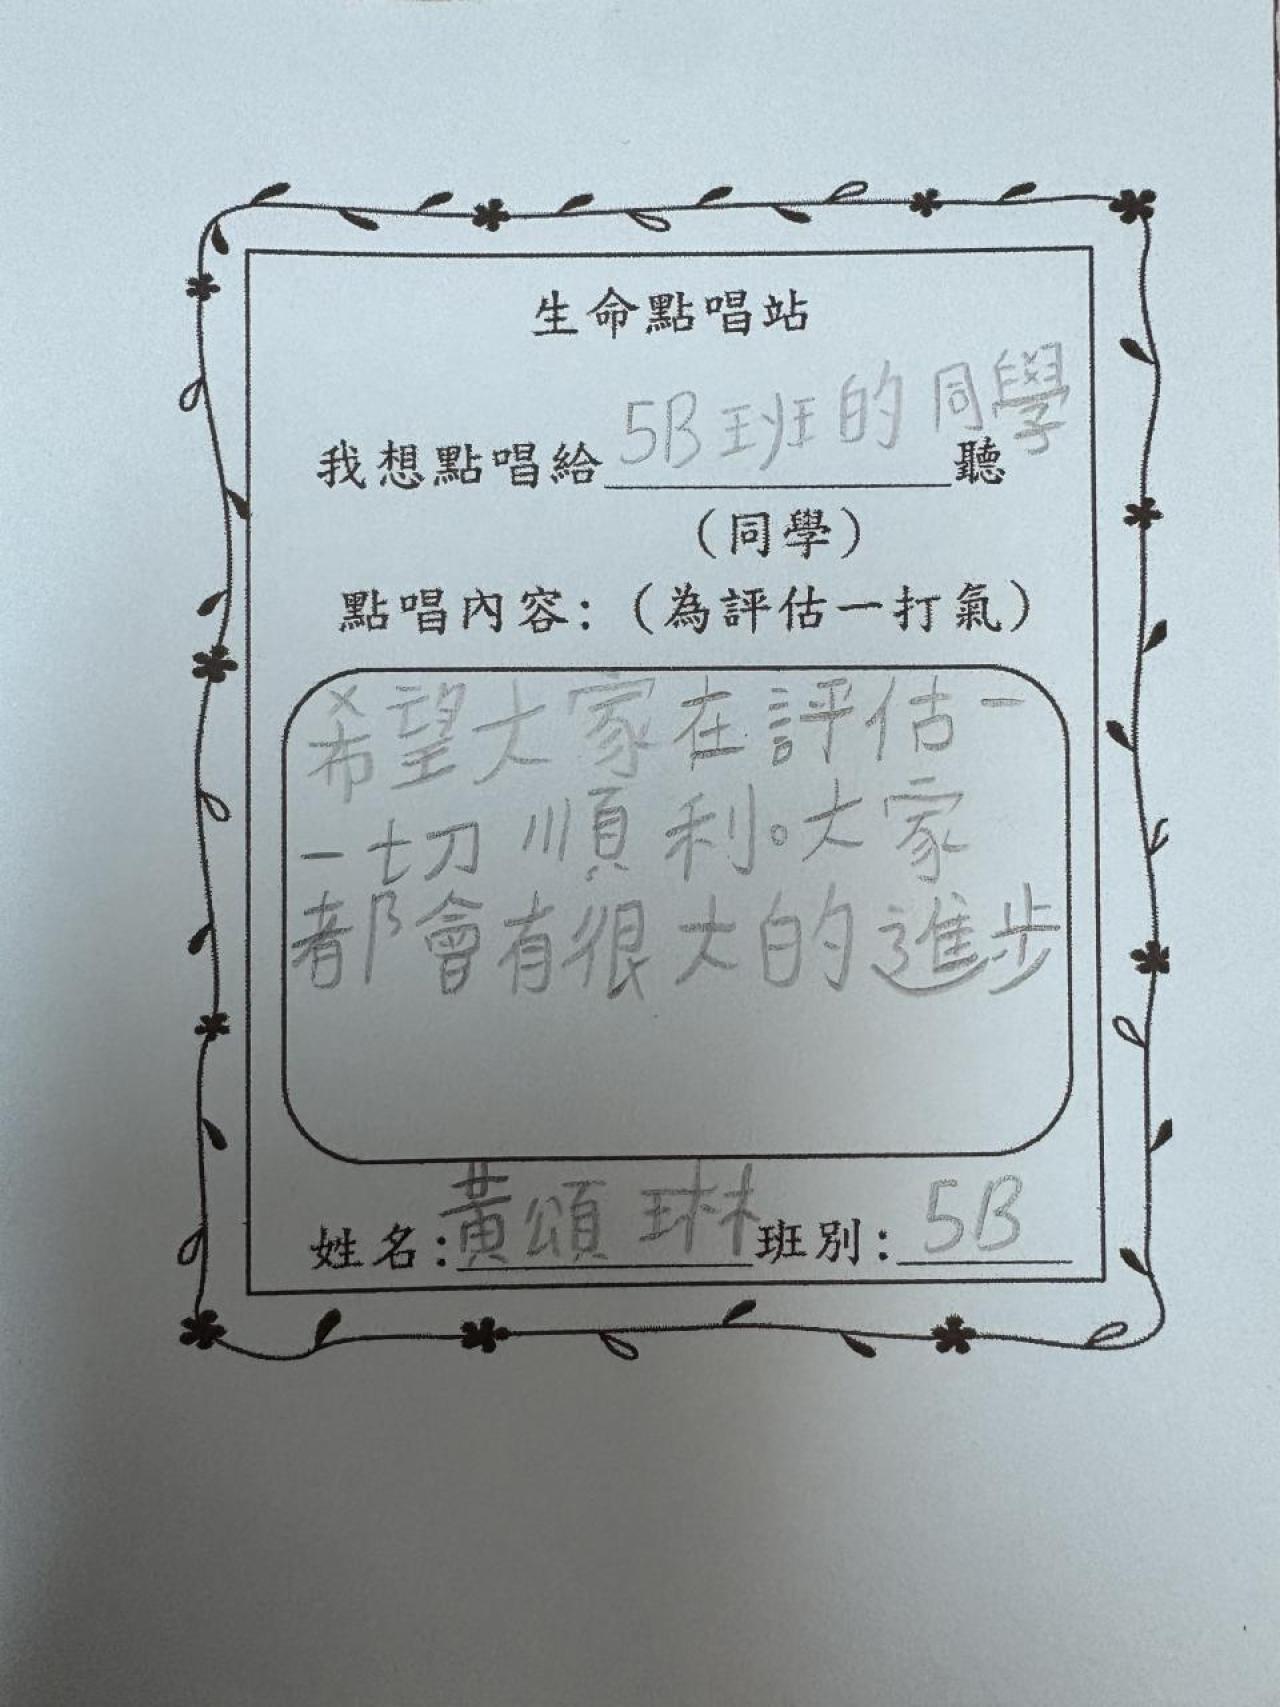 生命點唱站
我想點唱給5B班的同學聽
(同學)
點唱內容:(為評估一打氣)
希望大家在評估一
一切順利。大家
都會有很大的進步
姓名:黃頌琳班別:5B